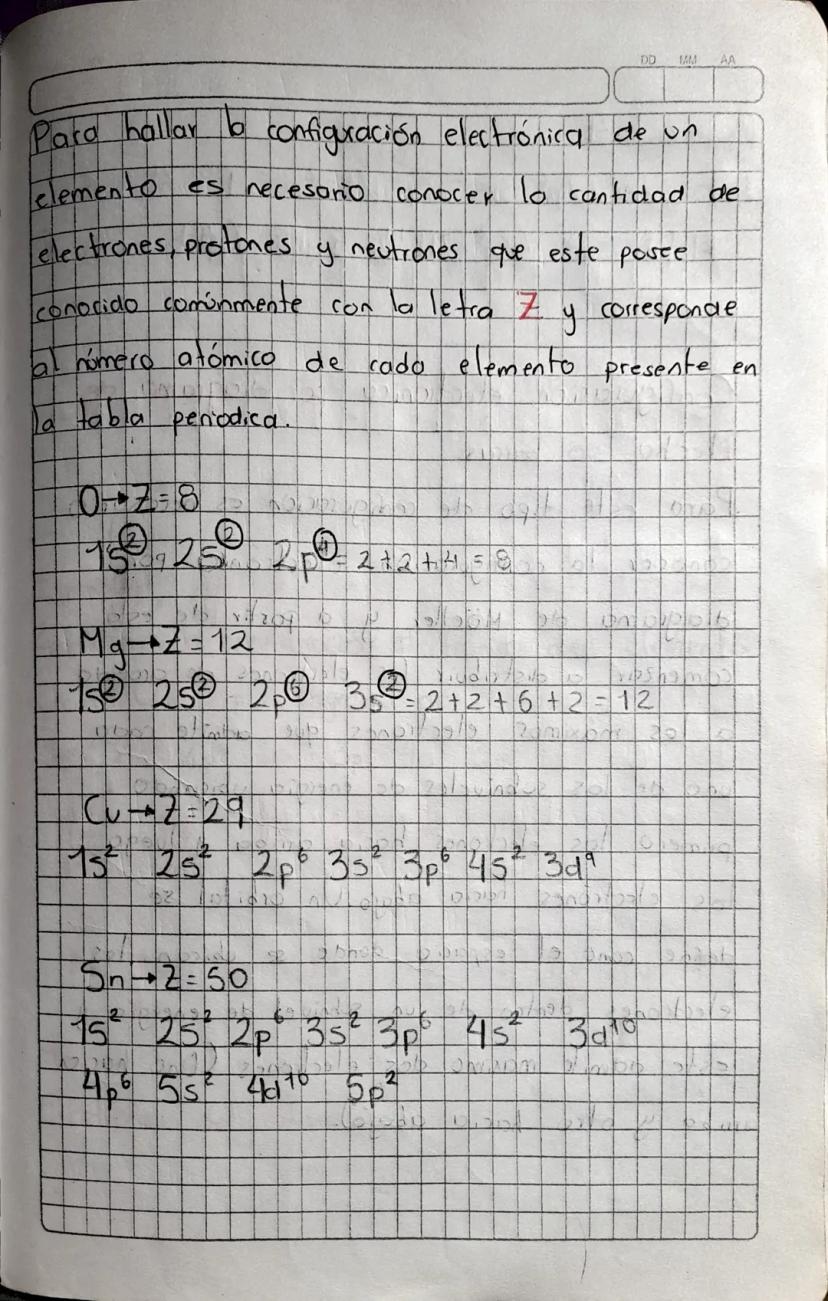 DD MM AA
Para hallar la configuración electrónica de un
elemento es necesario conocer la cantidad de
electrones, protones y neutrones que este posee
conocido comúnmente con la letra Z y corresponde
al número atómico de cada elemento presente en
la tabla periodica.
O→Z=8
1s² 2s² 2p⁴ = 2+2+4 = 8
Mg→Z=12
1s² 2s² 2p⁶ 3s² = 2+2+6+2 = 12
Cu→Z=29
1s² 2s² 2p⁶ 3s² 3p⁶ 4s² 3d⁹
Sn→Z=50
1s² 2s² 2p⁶ 3s² 3p⁶ 4s² 3d¹⁰
4p⁶ 5s² 4d¹⁰ 5p²